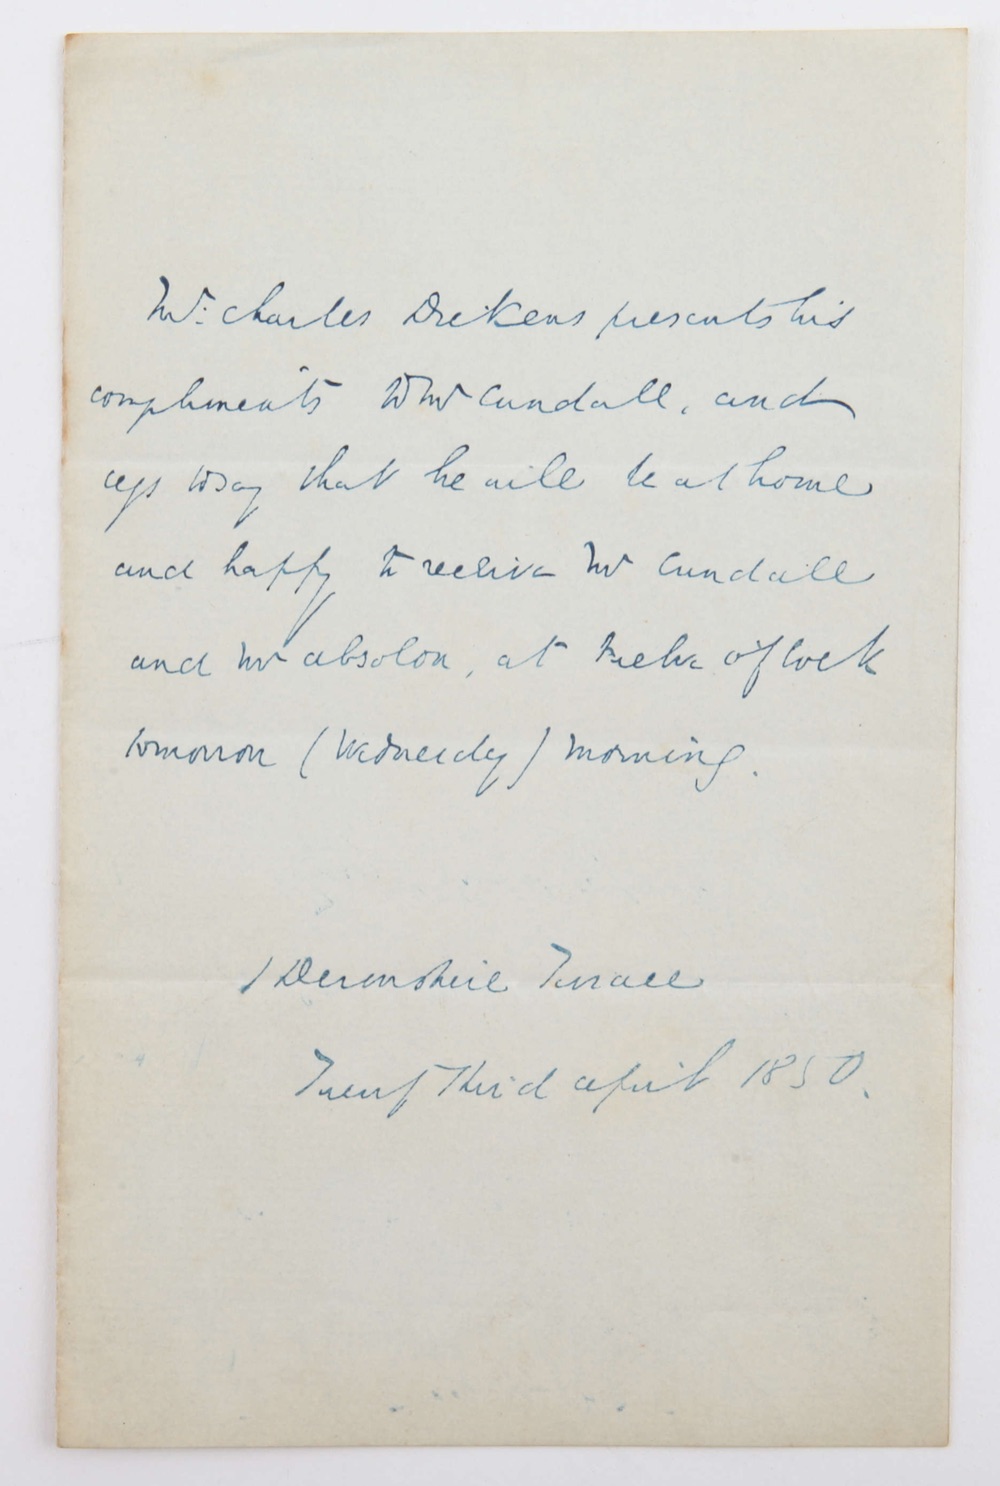 Mr. Charles Dickens presents his
compliments to Mr Cundall, and
begs to say that he will be at home
and happy to receive Mr Cundall
and Mr Absolon, at twelve o'Clock
tomorrow (Wednesday) Morning.
1 Devonshire Terrace
Twenty Third April 1850.